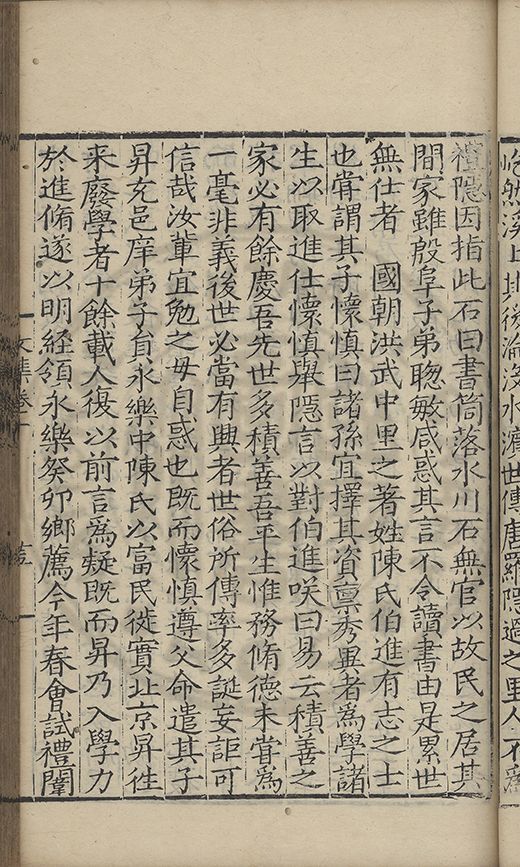 屹然溪上其後淪沒水濱世傳唐羅隱過之里人不爲
禮隱因指此石曰書筒落水川石無官以故民之居其
間家雖殷阜子弟聦敏咸惑其言不令讀書由是累世
無仕者　國朝洪武中里之著姓陳氏伯進有志之士
也甞謂其子懷慎曰諸孫宜擇其資禀秀異者爲學諸
生以取進仕懷慎舉隱言以對伯進咲曰易云積善之
家必有餘慶吾先世多積善吾平生惟務脩德未甞爲
一毫非義後世必當有興者世俗所傳率多誕妄詎可
信哉汝軰宜勉之毋自惑也既而懷慎遵父命遣其子
昇充邑庠弟子員永樂中陳氏以富民徙實北京昇徃
来廢學者十餘載人復以前言爲疑既而昇乃入學力
於進脩遂以明経領永樂癸卯鄉薦今年春會試禮闈
文集卷